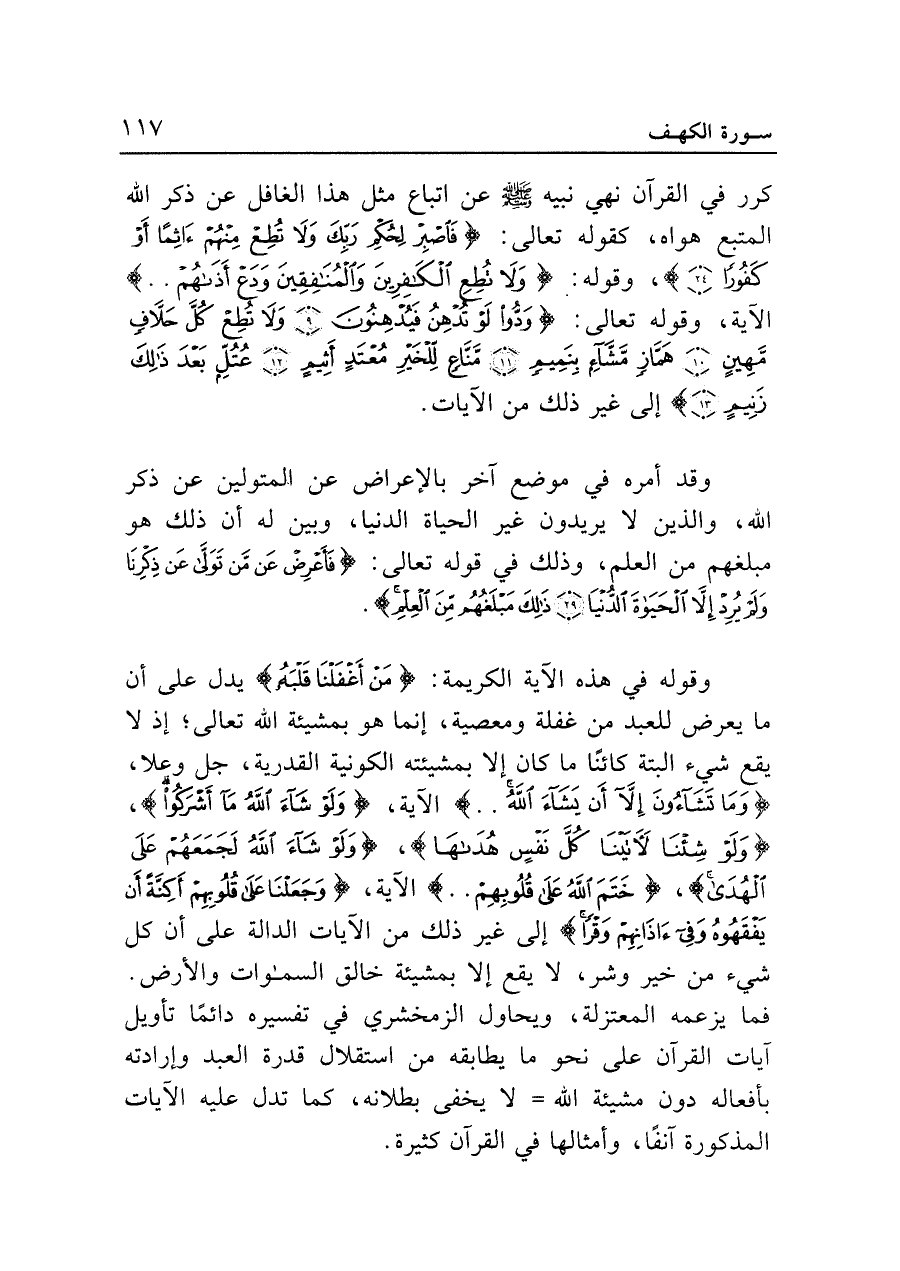 سورة الكهف ١١٧
كرر في القرآن نهي نبيه ﷺ عن اتباع مثل هذا الغافل عن ذكر الله
المتبع هواه، كقوله تعالى: ﴿فَٱصۡبِرۡ لِحُكۡمِ رَبِّكَ وَلَا تُطِعۡ مِنۡهُمۡ ءَاثِمًا أَوۡ
كَفُورٗا ٢٤﴾، وقوله: ﴿وَلَا تُطِعِ ٱلۡكَٰفِرِينَ وَٱلۡمُنَٰفِقِينَ وَدَعۡ أَذَىٰهُمۡ..﴾
الآية، وقوله تعالى: ﴿وَدُّواْ لَوۡ تُدۡهِنُ فَيُدۡهِنُونَ ٩ وَلَا تُطِعۡ كُلَّ حَلَّافٖ
مَّهِينٍ ١٠ هَمَّازٖ مَّشَّآءِۭ بِنَمِيمٖ ١١ مَّنَّاعٖ لِّلۡخَيۡرِ مُعۡتَدٍ أَثِيمٍ ١٢ عُتُلِّۭ بَعۡدَ ذَٰلِكَ
زَنِيمٍ ١٣﴾ إلى غير ذلك من الآيات.
وقد أمره في موضع آخر بالإعراض عن المتولين عن ذكر
الله، والذين لا يريدون غير الحياة الدنيا، وبين له أن ذلك هو
مبلغهم من العلم، وذلك في قوله تعالى: ﴿فَأَعۡرِضۡ عَن مَّن تَوَلَّىٰ عَن ذِكۡرِنَا
وَلَمۡ يُرِدۡ إِلَّا ٱلۡحَيَوٰةَ ٱلدُّنۡيَا ٢٩ ذَٰلِكَ مَبۡلَغُهُم مِّنَ ٱلۡعِلۡمِۚ﴾.
وقوله في هذه الآية الكريمة: ﴿مَنۡ أَغۡفَلۡنَا قَلۡبَهُۥ﴾ يدل على أن
ما يعرض للعبد من غفلة ومعصية، إنما هو بمشيئة الله تعالى؛ إذ لا
يقع شيء البتة كائنًا ما كان إلا بمشيئته الكونية القدرية، جل وعلا،
﴿وَمَا تَشَآءُونَ إِلَّآ أَن يَشَآءَ ٱللَّهُۚ..﴾ الآية، ﴿وَلَوۡ شَآءَ ٱللَّهُ مَآ أَشۡرَكُواْۗ﴾،
﴿وَلَوۡ شِئۡنَا لَأٓتَيۡنَا كُلَّ نَفۡسٍ هُدَىٰهَا﴾، ﴿وَلَوۡ شَآءَ ٱللَّهُ لَجَمَعَهُمۡ عَلَى
ٱلۡهُدَىٰۚ﴾، ﴿خَتَمَ ٱللَّهُ عَلَىٰ قُلُوبِهِمۡ..﴾ الآية، ﴿وَجَعَلۡنَا عَلَىٰ قُلُوبِهِمۡ أَكِنَّةً أَن
يَفۡقَهُوهُ وَفِيٓ ءَاذَانِهِمۡ وَقۡرٗاۚ﴾ إلى غير ذلك من الآيات الدالة على أن كل
شيء من خير وشر، لا يقع إلا بمشيئة خالق السمٰوات والأرض.
فما يزعمه المعتزلة، ويحاول الزمخشري في تفسيره دائمًا تأويل
آيات القرآن على نحو ما يطابقه من استقلال قدرة العبد وإرادته
بأفعاله دون مشيئة الله = لا يخفى بطلانه، كما تدل عليه الآيات
المذكورة آنفًا، وأمثالها في القرآن كثيرة.